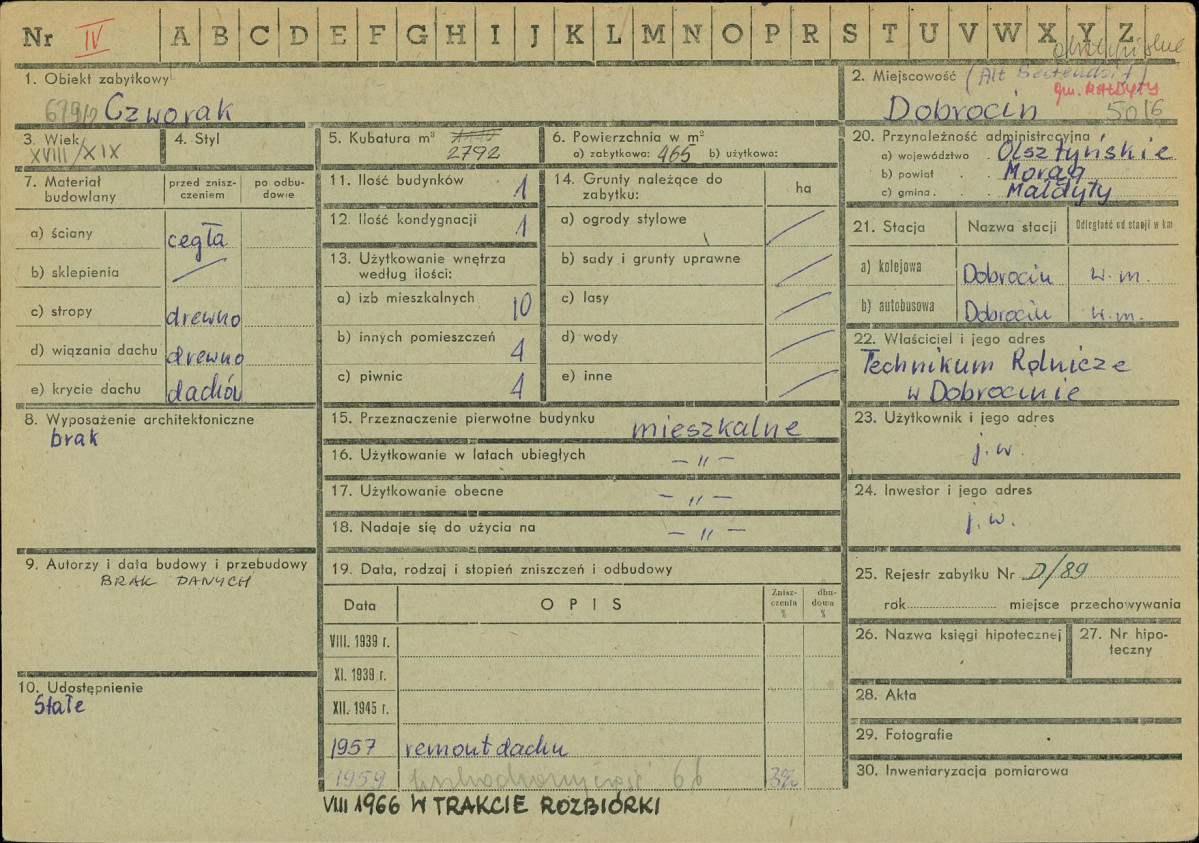 Nr IV A B C D E F G H I J K L M N O P R S T U V W X Y Z
1. Obiekt zabytkowy
Czworak
2. Miejscowość (Alt
gm. MAŁDYTY
Dobrocin 5016
3. Wiek
XVIII/XIX
4. Styl
5. Kubatura m³
2792
6. Powierzchnia w m²
a) zabytkowa: 465 b) użytkowa:
7. Materiał budowlany
przed znisz-
czeniem
po odbu-
dowie
a) ściany cegła
b) sklepienia —
c) stropy drewno
d) wiązania dachu drewno
e) krycie dachu dachów
8. Wyposażenie architektoniczne
brak
9. Autorzy i data budowy i przebudowy
BRAK DANYCH
10. Udostępnienie
Stałe
11. Ilość budynków 1
12. Ilość kondygnacji 1
13. Użytkowanie wnętrza
według ilości:
a) izb mieszkalnych 10
b) innych pomieszczeń 4
c) piwnic 4
14. Grunty należące do
zabytku: ha
a) ogrody stylowe —
b) sady i grunty uprawne —
c) lasy —
d) wody —
e) inne —
15. Przeznaczenie pierwotne budynku mieszkalne
16. Użytkowanie w latach ubiegłych – " –
17. Użytkowanie obecne – " –
18. Nadaje się do użycia na – " –
19. Data, rodzaj i stopień zniszczeń i odbudowy
Data OPIS Znisz-
czenia
% dbu-
dowa
%
VIII. 1939 r.
XI. 1939 r.
XII. 1945 r.
1957 remont dachu
1959 66 3%
VIII 1966 W TRAKCIE ROZBIÓRKI
20. Przynależność administracyjna
a) województwo . Olsztyńskie
b) powiat . . Morąg
c) gmina . Małdyty
21. Stacja Nazwa stacji Odległość od stacji w km
a) kolejowa Dobrocin w. m.
b) autobusowa Dobrocin w. m.
22. Właściciel i jego adres
Technikum Rolnicze
w Dobrocinie
23. Użytkownik i jego adres
j. w.
24. Inwestor i jego adres
j. w.
25. Rejestr zabytku Nr D/89
rok miejsce przechowywania
26. Nazwa księgi hipotecznej
27. Nr hipo-
teczny
28. Akta
29. Fotografie
30. Inwentaryzacja pomiarowa